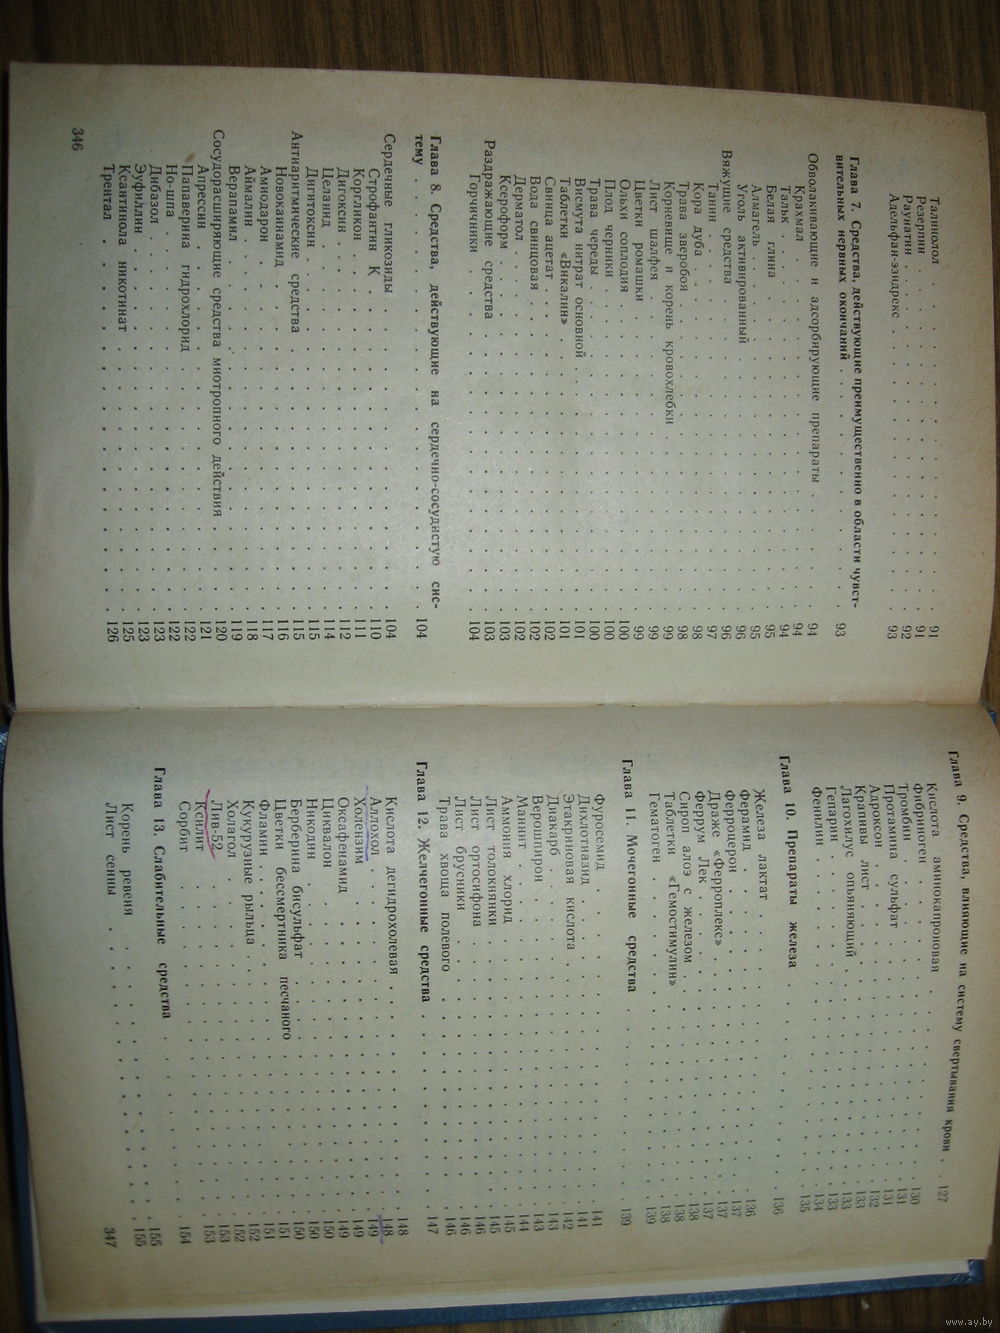 Талинолол . . . 91
Резерпин . . . 91
Раунатин . . . 92
Адельфан-эзидрекс . . . 93
Глава 7. Средства, действующие преимущественно в области чувст-
вительных нервных окончаний . . . 93
Обволакивающие и адсорбирующие препараты . . . 94
Крахмал . . . 94
Тальк . . . 94
Белая глина . . . 95
Алмагель . . . 95
Уголь активированный . . . 96
Вяжущие средства . . . 96
Танин . . . 97
Кора дуба . . . 98
Трава зверобоя . . . 98
Корневище и корень кровохлебки . . . 99
Лист шалфея . . . 99
Цветки ромашки . . . 99
Ольхи соплодия . . . 100
Плод черники . . . 100
Трава череды . . . 100
Висмута нитрат основной . . . 101
Таблетки «Викалин» . . . 101
Свинца ацетат . . . 102
Вода свинцовая . . . 102
Дерматол . . . 102
Ксероформ . . . 103
Раздражающие средства . . . 103
Горчичники . . . 104
Глава 8. Средства, действующие на сердечно-сосудистую сис-
тему . . . 104
Сердечные гликозиды . . . 104
Строфантин К . . . 110
Коргликон . . . 111
Дигоксин . . . 112
Целанид . . . 114
Дигитоксин . . . 115
Антиаритмические средства . . . 115
Новокаинамид . . . 116
Амиодарон . . . 117
Аймалин . . . 118
Верапамил . . . 119
Сосудорасширяющие средства миотропного действия . . . 120
Апрессин . . . 121
Папаверина гидрохлорид . . . 122
Но-шпа . . . 122
Дибазол . . . 123
Эуфиллин . . . 123
Ксантинола никотинат . . . 125
Трентал . . . 126
346
Глава 9. Средства, влияющие на систему свертывания крови . 127
Кислота аминокапроновая . . . 130
Фибриноген . . . 131
Тромбин . . . 131
Протамина сульфат . . . 132
Адроксон . . . 133
Крапивы лист . . . 133
Лагохилус опьяняющий . . . 133
Гепарин . . . 134
Фенилин . . . 135
Глава 10. Препараты железа . . . 136
Железа лактат . . . 136
Ферамид . . . 137
Ферроцерон . . . 137
Драже «Ферроплекс» . . . 137
Феррум Лек . . . 138
Сироп алоэ с железом . . . 138
Таблетки «Гемостимулин» . . . 138
Гематоген . . . 139
Глава 11. Мочегонные средства . . . 139
Фуросемид . . . 141
Дихлотиазид . . . 141
Этакриновая кислота . . . 142
Диакарб . . . 143
Верошпирон . . . 143
Маннит . . . 144
Аммония хлорид . . . 145
Лист толокнянки . . . 145
Лист ортосифона . . . 146
Лист брусники . . . 146
Трава хвоща полевого . . . 146
Глава 12. Желчегонные средства . . . 147
Кислота дегидрохолевая . . . 148
Аллохол . . . 148
Холензим . . . 149
Оксафенамид . . . 149
Циквалон . . . 149
Никодин . . . 150
Берберина бисульфат . . . 150
Цветки бессмертника песчаного . . . 151
Фламин . . . 151
Кукурузные рыльца . . . 152
Холагол . . . 152
Лив-52 . . . 153
Ксилит . . . 153
Сорбит . . . 154
Глава 13. Слабительные средства . . . 155
Корень ревеня . . . 155
Лист сенны
347
www.ay.by